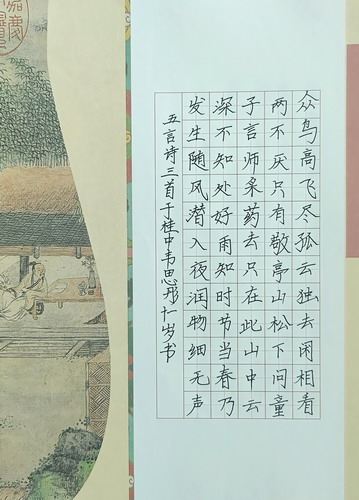 众鸟高飞尽孤云独去闲相看
两不厌只有敬亭山松下问童
子言师采药去只在此山中云
深不知处好雨知时节当春乃
发生随风潜入夜润物细无声
五言诗三首于桂中韦思彤十一岁书